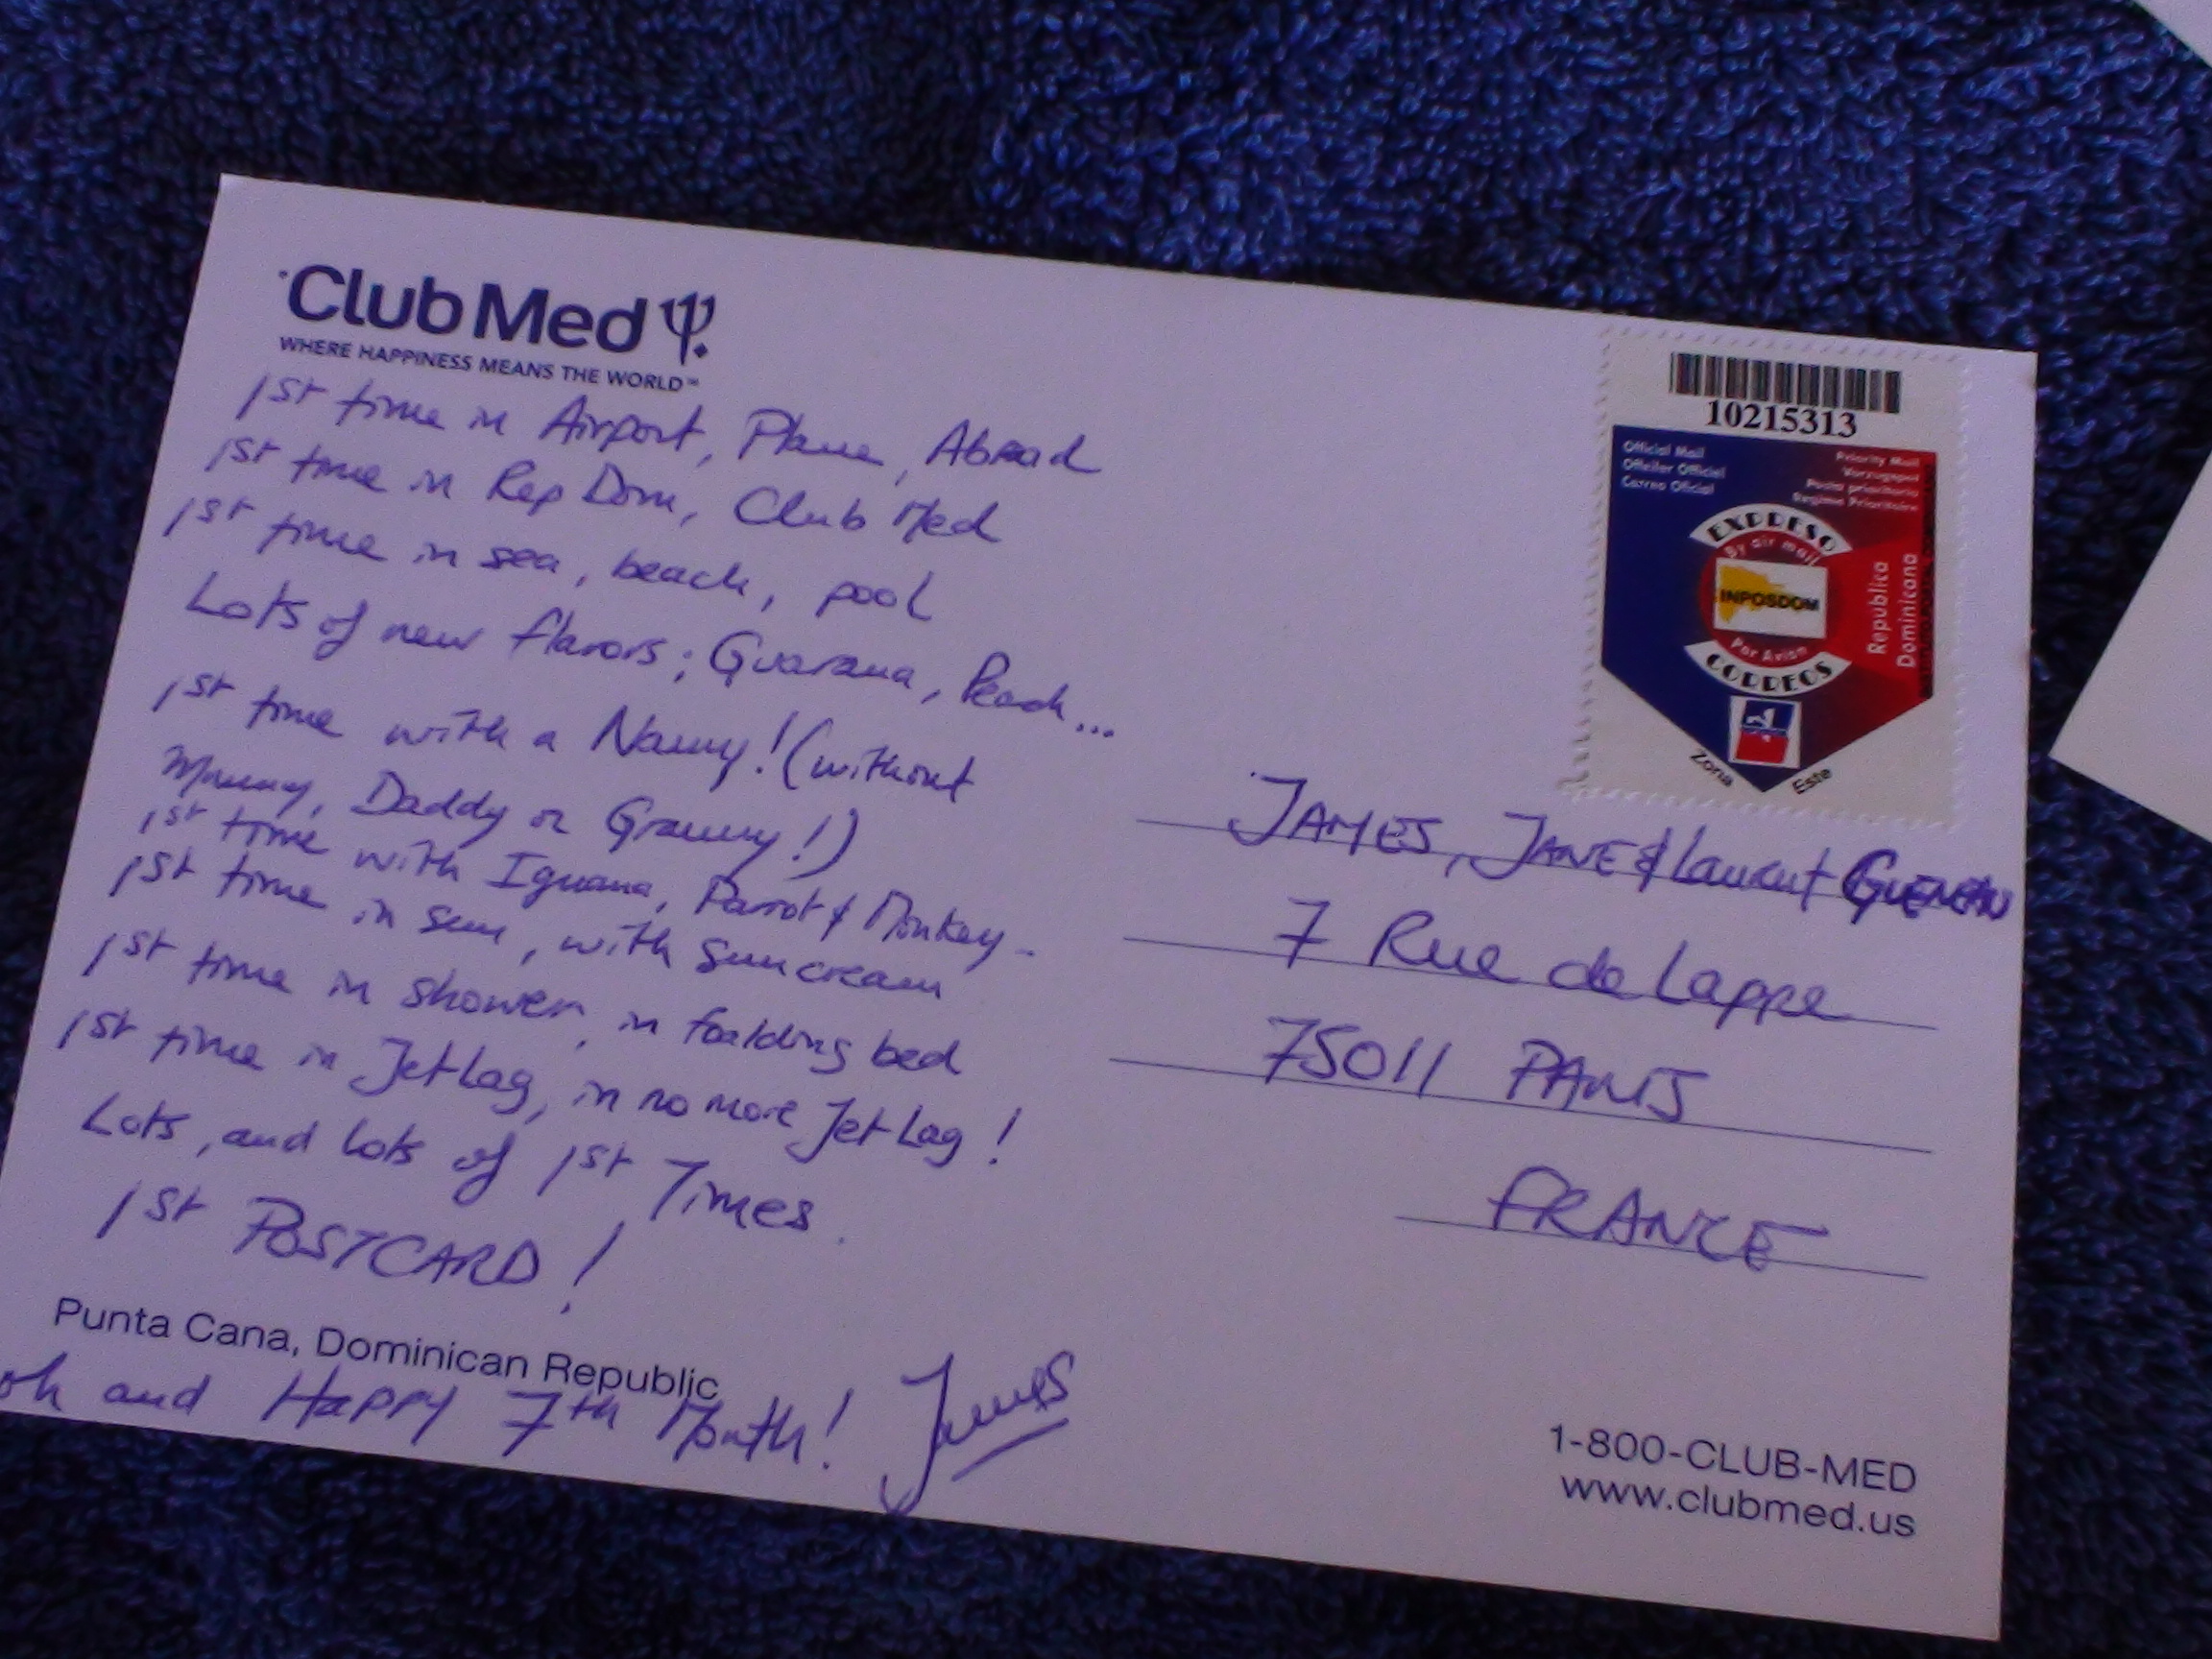 Club Med
WHERE HAPPINESS MEANS THE WORLD™
1st time in Airport, Plane, Abroad
1st time in Rep Dom, Club Med
1st time in sea, beach, pool
Lots of new flavors; Guarana, Peach...
1st time with a Nanny! (without
Mummy, Daddy or Granny!)
1st time with Iguana, Parrot & Monkey -
1st time in sun, with suncream
1st time in shower, in foalding bed
1st time in JetLag, in no more Jet Lag!
Lots, and lots of 1st Times.
1st POSTCARD!
Punta Cana, Dominican Republic
oh and Happy 7th Month! James
10215313
Official Mail
Correo Oficial
Priority Mail
EXPRESO
By air mail
INPOSDOM
Par Avion
CORREOS
Republica
Dominicana
Zona Este
JAMES, JANE & Laurent
7 Rue de Lappe
75011 PARIS
FRANCE
1-800-CLUB-MED
www.clubmed.us